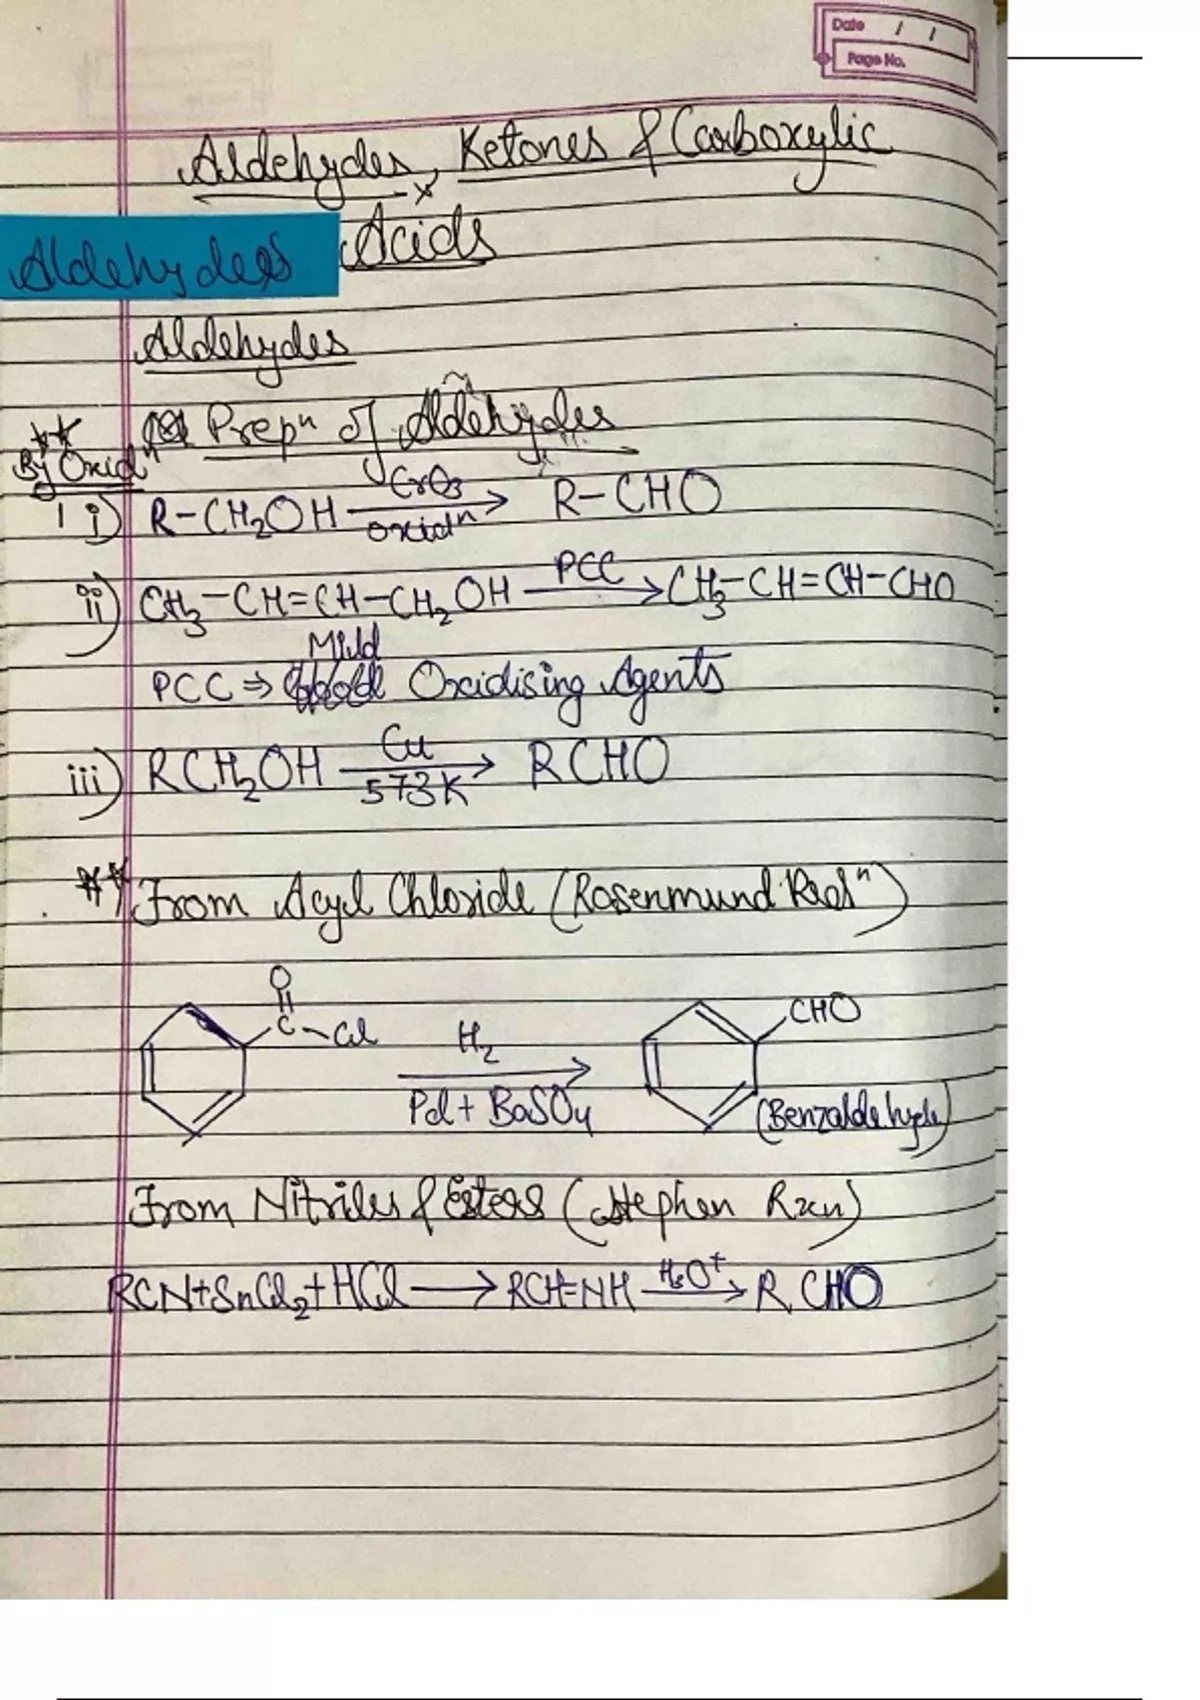 Date / /
Page No.
Aldehydes, Ketones & Carboxylic
Acids
Aldehydes
Aldehydes
Prepⁿ of Aldehydes
By Oxidⁿ
1 i) R-CH₂OH —CrO₃ / oxidⁿ→ R-CHO
ii) CH₃-CH=CH-CH₂OH —PCC→ CH₃-CH=CH-CHO
Mild
PCC ⇒ Oxidising Agents
iii) RCH₂OH —Cu / 573K→ RCHO
** From Acyl Chloride (Rosenmund Redⁿ)
O
C-Cl —H₂ / Pd + BaSO₄→ CHO
(Benzaldehyde)
From Nitriles & Esters (Stephen Rxn)
RCN+SnCl₂+HCl → RCH=NH —H₃O⁺→ RCHO